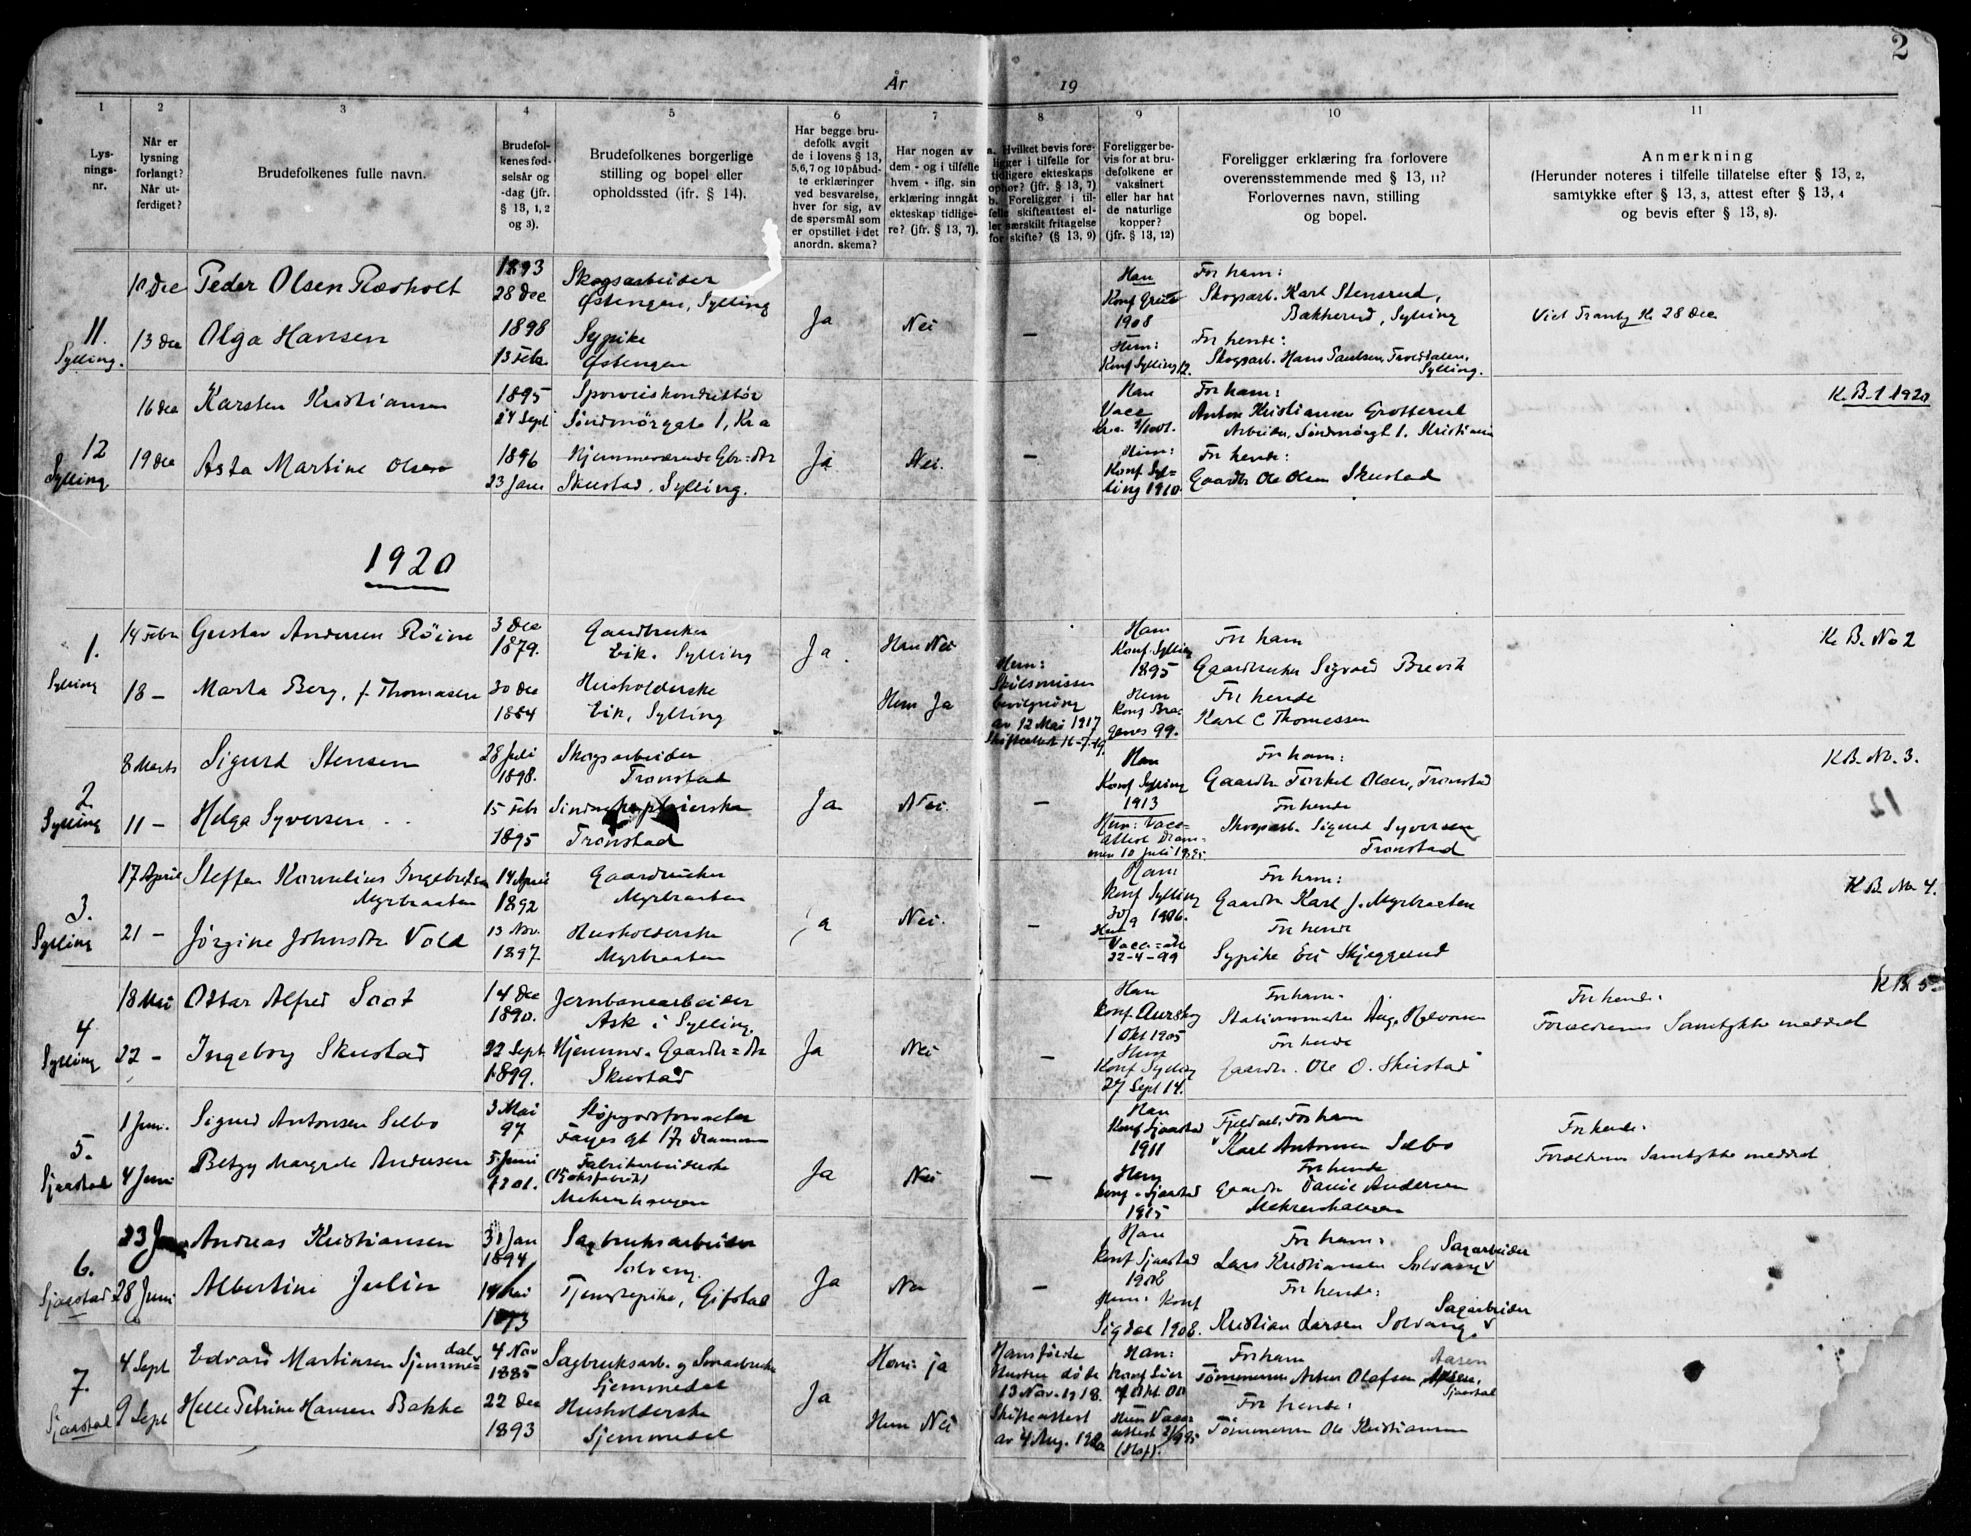 2
År 19
1 2 3 4 5 6 7 8 9 10 11
Lys-
nings-
nr.
Når er
lysning
forlangt?
Når ut-
ferdiget?
Brudefolkenes fulle navn.
Brudefol-
kenes fød-
selsår og
-dag (jfr.
§ 13, 1, 2
og 3).
Brudefolkenes borgerlige
stilling og bopel eller
opholdssted (jfr. § 14).
Har begge bru-
defolk avgit
de i lovens § 13,
5,6,7 og 10 påbud-
te erklæringer
ved besvarelse,
hver for sig, av
de spørsmål som
er opstillet i det
anordn. skema?
Har nogen av
dem - og i tilfelle
hvem - iflg. sin
erklæring inngåt
ekteskap tidlige-
re? (jfr. § 13, 7).
a. Hvilket bevis fore-
ligger i tilfelle for
tidligere ekteskaps
ophør? (jfr. § 13, 7)
b. Foreligger i til-
felle skifteattest el-
ler særskilt fritagelse
for skifte? (§ 13, 9)
Foreligger be-
vis for at bru-
defolkene er
vaksinert
eller har hat
de naturlige
kopper?
(jfr. § 13, 12)
Foreligger erklæring fra forlovere
overensstemmende med § 13, 11?
Forlovernes navn, stilling
og bopel.
Anmerkning
(Herunder noteres i tilfelle tillatelse efter § 13, 2,
samtykke efter § 13, 3, attest efter § 13, 4
og bevis efter § 13, 8).
11.
Sylling.
10 Dec
13 Dec
Peder Olsen Rævholt
Olga Hansen
1893
28 Dec
1898
13 Febr
Skogsarbeider
Østengen, Sylling
Sypike
Østengen
Ja
Nei
—
Han
Konf
1908
Hun:
Konf Sylling 12.
For ham:
Skogsarb. Karl Stensrud,
Bakkerud, Sylling
For hende:
Skogsarb. Hans Paulsen, Trolddalen,
Sylling.
Viet Tranby K. 28 Dec
12
Sylling
16 Dec
19 Dec
Karsten Kristiansen
Asta Martine Olsen
1895
24 Sept
1896
23 Jan
Sporveiskonduktør
Søndmørgate 1, Kra
Hjemmeværende Gbr=dtr
Skustad, Sylling.
Ja
Nei.
—
Han
Vacc
Hun:
Konf Syl=
ling 1910
For ham:
Anton Kristiansen Grotterud
Arbeider, Søndmørgt 1. Kristiania
For hende:
Gaardbr Ole Olsen Skustad
K. B. 1 1920
1920
1.
Sylling
14 Febr
18 —
Gustav Andersen Röine
Marta Berg, f. Thomasen
3 Dec
1879.
30 Dec
1884
Gaardbruker
Eik. Sylling
Husholderske
Eik, Sylling
Ja.
Han Nei
Hun Ja
Hun:
Skilsmisse
bevilgning
av 12 Mai 1917
Skifteattest 16-7-19.
Han
Konf. Sylling
1895
Hun
Konf Brag
genes 99.
For ham
Gaardbruker Sigvard Brevik
For hende
Karl C Thomessen
K. B. No 2
2.
Sylling
8 Marts
11 —
Sigurd Stensen
Helga Syversen
28 Juli
1898.
15 Febr
1895
Skogsarbeider
Tronstad
Tronstad
Ja
Nei.
—
Han
Konf Sylling
1913
Hun: Vacc=
attest Dram-
men 10 Juli 1895
For ham:
Gaardbr Torkel Olsen, Tronstad
For hende
Skogsarb. Sigurd Syversen
Tronstad
KB. No. 3.
3.
Sylling
17 April
21 —
Steffen Kornelius Ingebretsen
Myrbraaten
Jørgine Johnsdtr Vold
14 April
1892
13 Nov.
1897.
Gaardbruker
Myrbraaten
Husholderske
Myrbraaten
Ja
Nei.
—
Han:
Konf Sylling
30/9 1906.
Hun
Vacc=att
22-4-99
For ham:
Gaardbr Karl J. Myrbraaten
For hende
Sypike Evi Skjeggerud
K B. No 4.
4
Sylling
18 Mai
22 —
Ottar Alfred Saat
Ingeborg Skustad
14 Dec
1890.
22 Sept
1899.
Jernbanearbeider
Ask i Sylling.
Hjemmev. Gaardbr=dtr
Skustad
Ja
Nei
—
Han
Konf. Aurskog
1 Okt 1905
Hun
Konf Sylling
27 Sept 14.
For ham.
Stationsmester Aug. Halvorsen
For hende
Gaardbr. Ole O. Skustad
For hende:
Forældrenes Samtykke meddelt
K B. 5.
5.
Sjaastad
1 Juni.
4 Juni
Sigurd Antonsen Selbo
Betzy Margrete Andersen
3 Mai
97
5. Juni
1901.
Fayes gt 17, Drammen
Fabrikarbeiderske
Mehrenhaugen
Ja
Nei
—
Han
Konf Sjaastad
1911
Hun
konf. Sjaastad
1915
Fjeldarb. For ham
Karl Antonsen Selbo
For hende
Gaardbr Daniel Andersen
Mehrenhaugen
For hende:
Forældrenes Samtykke meddelt
6.
Sjaastad
23 Juni
28 Juni
Andreas Kristiansen
Albertine Julin
31 Jan
1894
14 Mai
1893
Sagbruksarbeider
Solvang.
Tjenestepike, Gifstad
Ja
Nei
—
Han
konf Sjaastad
1908
Hun: Konf
Sigdal 1908.
For ham: Sagarbeider
Lars Kristiansen Solvang
For hende:
Sagarbeider
Kristian Larsen Solvang
7.
Sjaastad
4 Sept
9 Sept
Edvard Martinsen Sjemme=
dal
Helle Petrine Hansen Bakke
4 Nov
1885
22 Dec
1893
Sagbruksarb. og Smaabruker
Sjemmedal
Husholderske
Sjemmedal
Ja
Han: ja
Hun Nei
Hans første
Hustru døde
13 Nov. 1918.
Skifteattest
av 4 Aug. 1920
Han:
konf Lier
7 Okt 00
Hun Vacc
attest
(Hof).
For ham
Tømmerm Anton Olafsen, Aasen
Sjaastad
For hende:
Tømmerm Ole Kristiansen